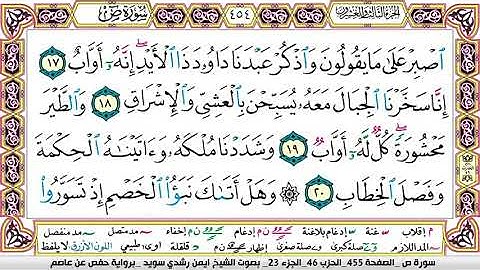 الجزء الثالث والعشرون ٤٥٤ سورة ص
ٱصْبِرْ عَلَىٰ مَا يَقُولُونَ وَٱذْكُرْ عَبْدَنَا دَاوُۥدَ ذَا ٱلْأَيْدِ ۖ إِنَّهُۥٓ أَوَّابٌ ١٧
إِنَّا سَخَّرْنَا ٱلْجِبَالَ مَعَهُۥ يُسَبِّحْنَ بِٱلْعَشِىِّ وَٱلْإِشْرَاقِ ١٨ وَٱلطَّيْرَ
مَحْشُورَةً ۖ كُلٌّ لَّهُۥٓ أَوَّابٌ ١٩ وَشَدَدْنَا مُلْكَهُۥ وَءَاتَيْنَٰهُ ٱلْحِكْمَةَ
وَفَصْلَ ٱلْخِطَابِ ٢٠ ۞ وَهَلْ أَتَىٰكَ نَبَؤُا۟ ٱلْخَصْمِ إِذْ تَسَوَّرُوا۟
م إقلاب غنة إدغام بلاغنة ن م إدغام ن م إخفاء مد متصل مد منفصل
المد اللازم صلة كبرى صلة صغرى إظهار ن م قلقلة طبيعي اللون الأزرق لا يلفظ
سورة ص _ الصفحة 455_الحزب 46_الجزء 23_ بصوت الشيخ ايمن رشدي سويد _برواية حفص عن عاصم